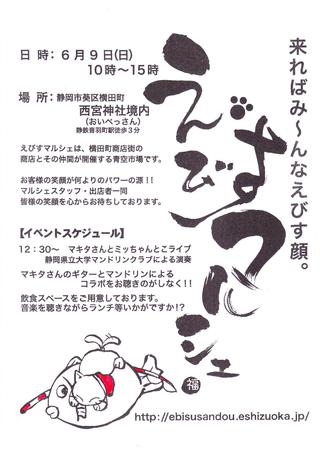 来ればみ～んなえびす顔。
えびすマルシェ
福
日 時：６月９日(日)
１０時～１５時
場 所：静岡市葵区横田町
西宮神社境内
（おいべっさん）
静鉄音羽町駅徒歩３分
えびすマルシェは、横田町商店街の
商店とその仲間が開催する青空市場です。
お客様の笑顔が何よりのパワーの源！！
マルシェスタッフ・出店者一同
皆様の笑顔を心からお待ちしております。
【イベントスケジュール】
１２：３０～ マキタさんとミッちゃんとこライブ
静岡県立大学マンドリンクラブによる演奏
マキタさんのギターとマンドリンによる
コラボをお聴きのがしなく！！
飲食スペースをご用意しております。
音楽を聴きながらランチ等いかがですか!?
http://ebisusandou.eshizuoka.jp/